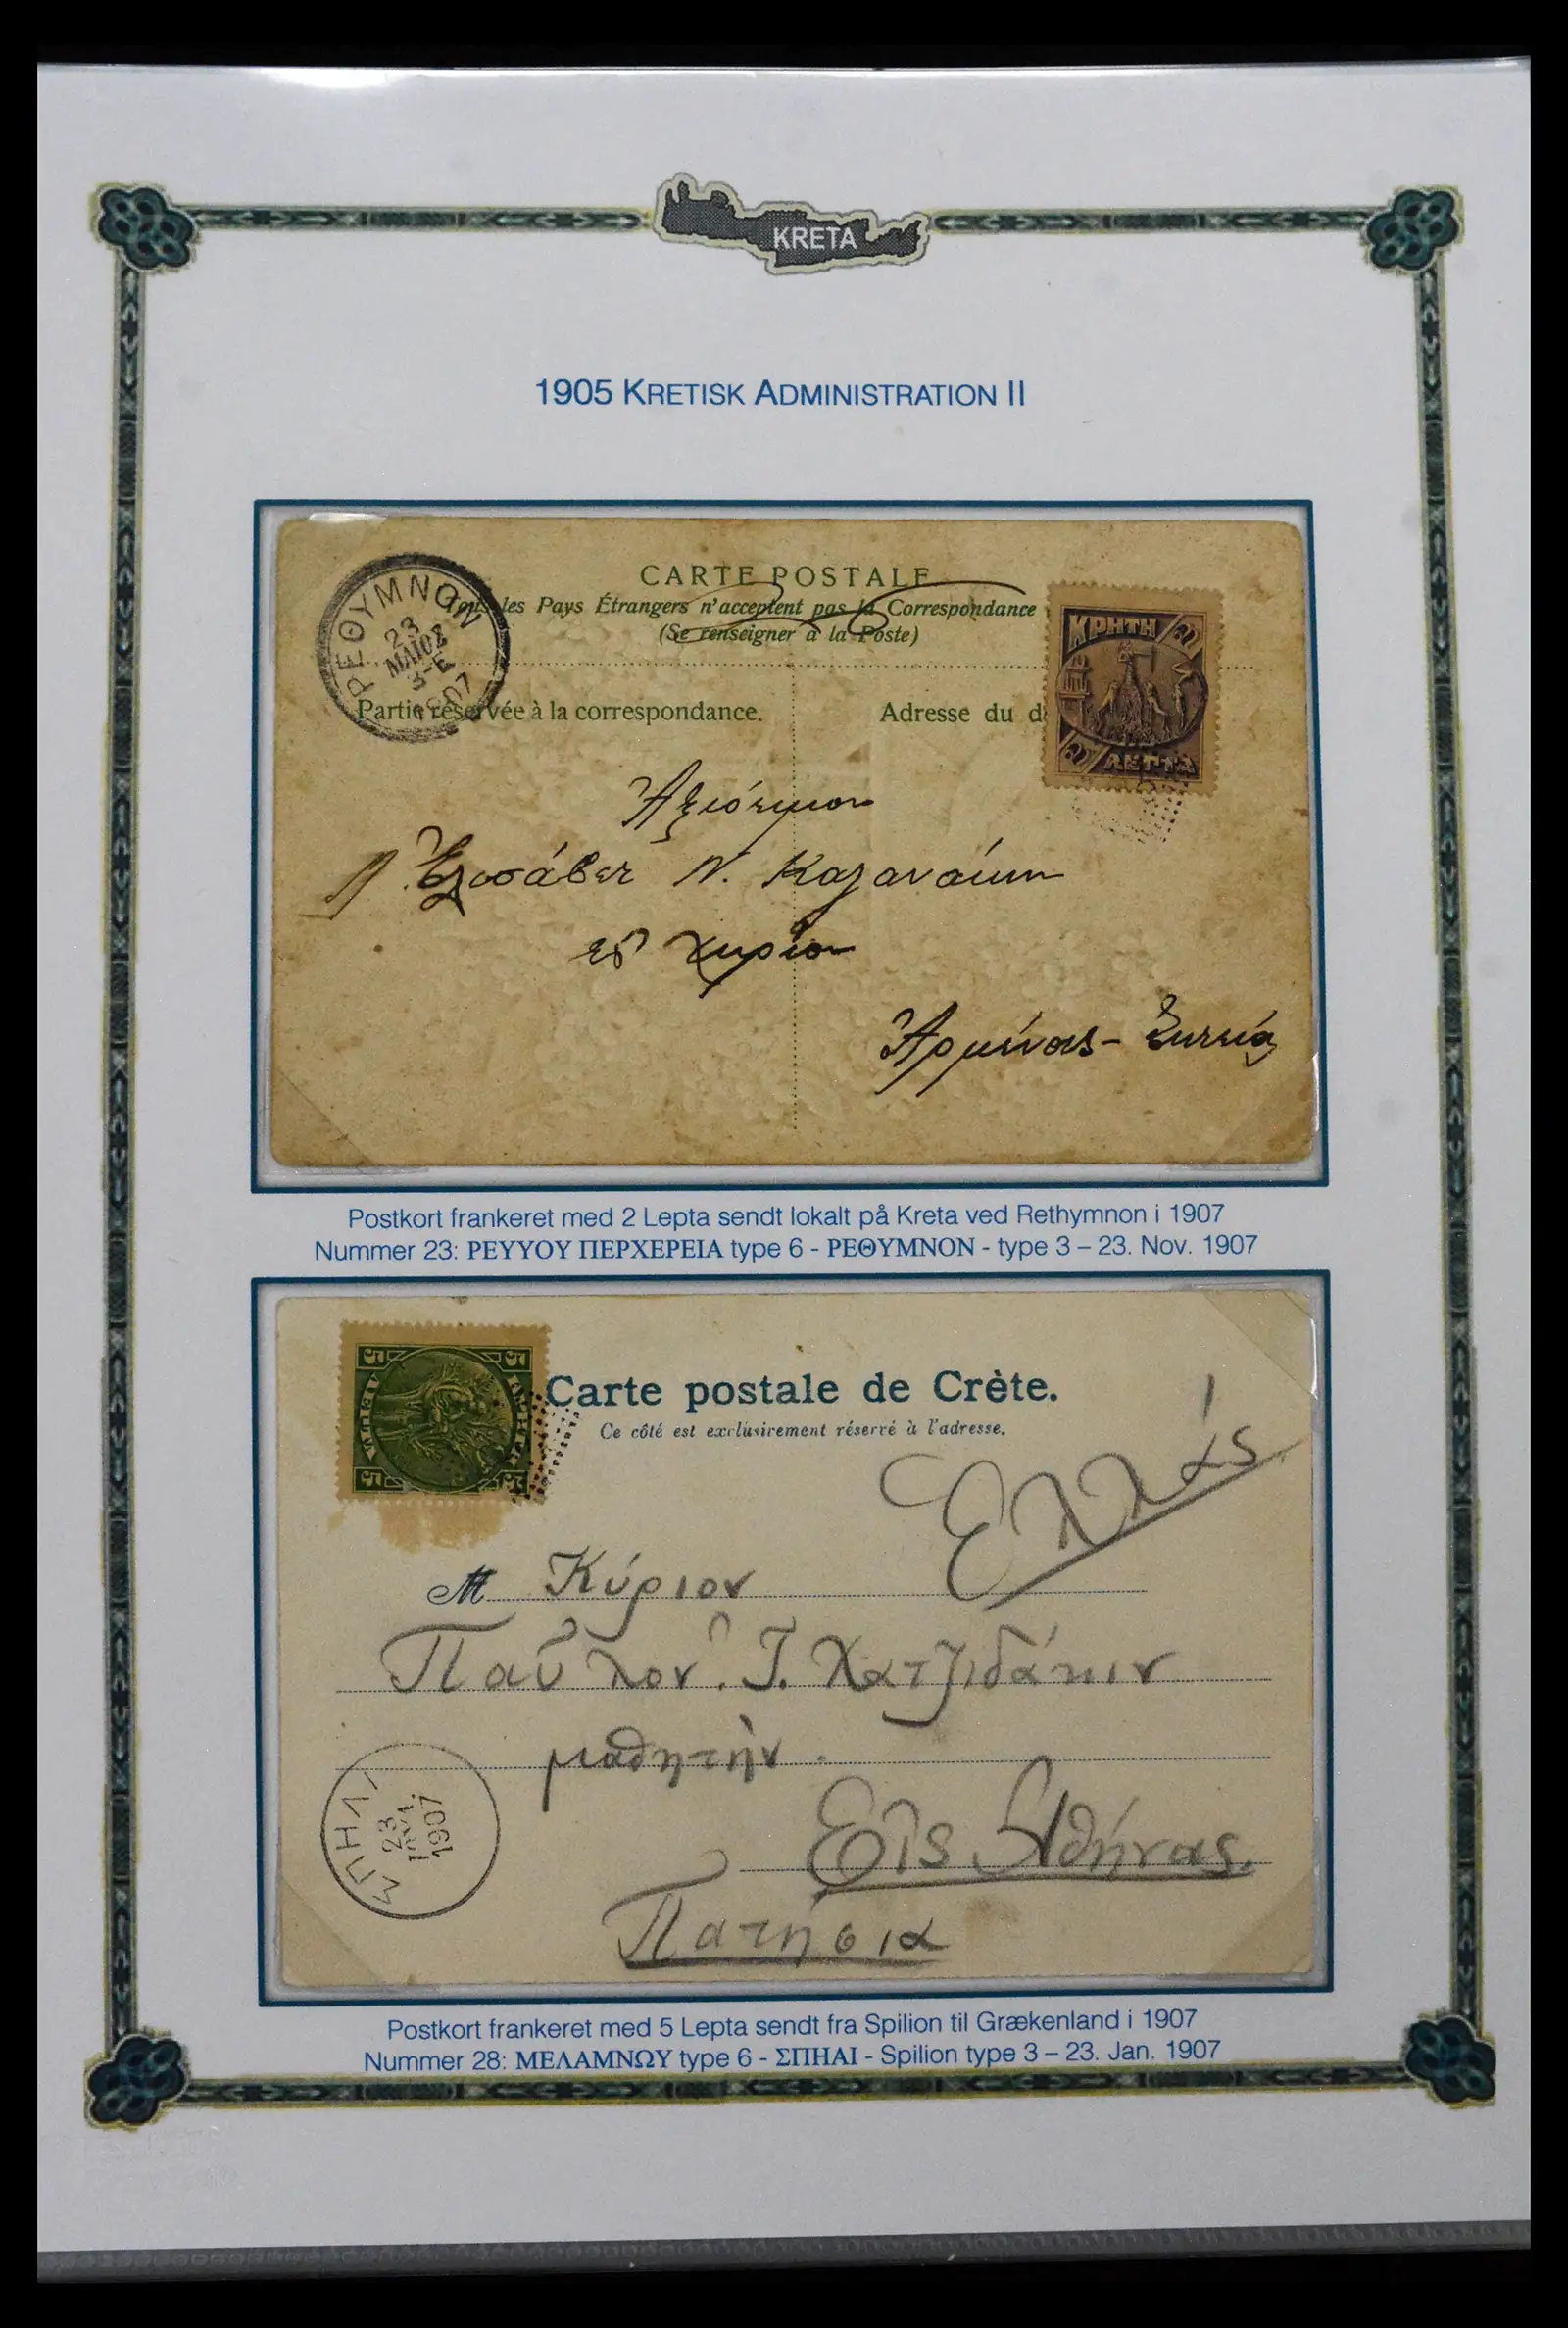 KRETA
1905 KRETISK ADMINISTRATION II
ΡΕΘΥΜΝΟΝ
23
ΜΑΪΟΣ
3-Ε
1907
CARTE POSTALE
Tous les Pays Étrangers n'acceptent pas la Correspondance
(Se renseigner à la Poste)
ΚΡΗΤΗ 2
2 ΛΕΠΤΑ
Partie réservée à la correspondance.
Adresse du d
Ἀξιότιμον
Ἐλισάβετ Ν. Καζανάκη
εἰς χωρίον
Ἀρμένους - Σητεία
Postkort frankeret med 2 Lepta sendt lokalt på Kreta ved Rethymnon i 1907
Nummer 23: ΡΕΥΥΟΥ ΠΕΡΧΕΡΕΙΑ type 6 - ΡΕΘΥΜΝΟΝ - type 3 – 23. Nov. 1907
5 ΚΡΗΤΗ 5
5 ΛΕΠΤΑ 5
Carte postale de Crète.
Ce côté est exclusivement réservé à l'adresse.
Ελλάς
M Κύριον
Παῦλον Ἰ. Χατζιδάκιν
μαθητὴν.
Εἰς Ἀθήνας.
Πατήσια
ΣΠΗΛΙ
23
ΙΑΝ.
1907
Postkort frankeret med 5 Lepta sendt fra Spilion til Grækenland i 1907
Nummer 28: ΜΕΛΑΜΝΩΥ type 6 - ΣΠΗΑΙ - Spilion type 3 – 23. Jan. 1907